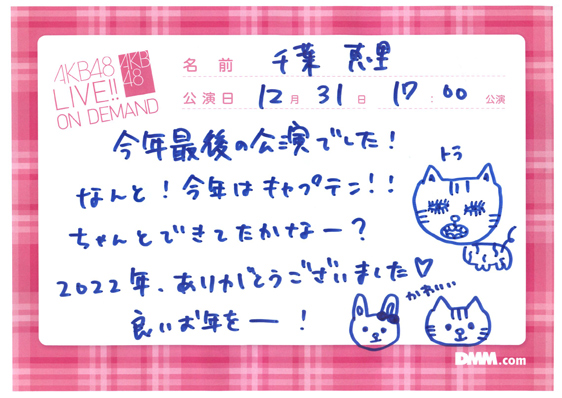 AKB48
LIVE!!
ON DEMAND
AKB
48
名前 千葉 恵里
公演日 12月 31日 17:00 公演
今年最後の公演でした!
なんと!今年はキャプテン!!
ちゃんとできてたかなー?
2022年、ありがとうございました♡
良いお年をー!
トラ
かわいい
DMM.com